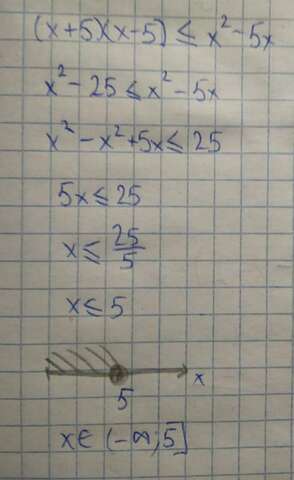 (x+5)(x-5) ≤ x² - 5x
x² - 25 ≤ x² - 5x
x² - x² + 5x ≤ 25
5x ≤ 25
x ≤ 25/5
x ≤ 5
x
5
x ∈ (-∞; 5]